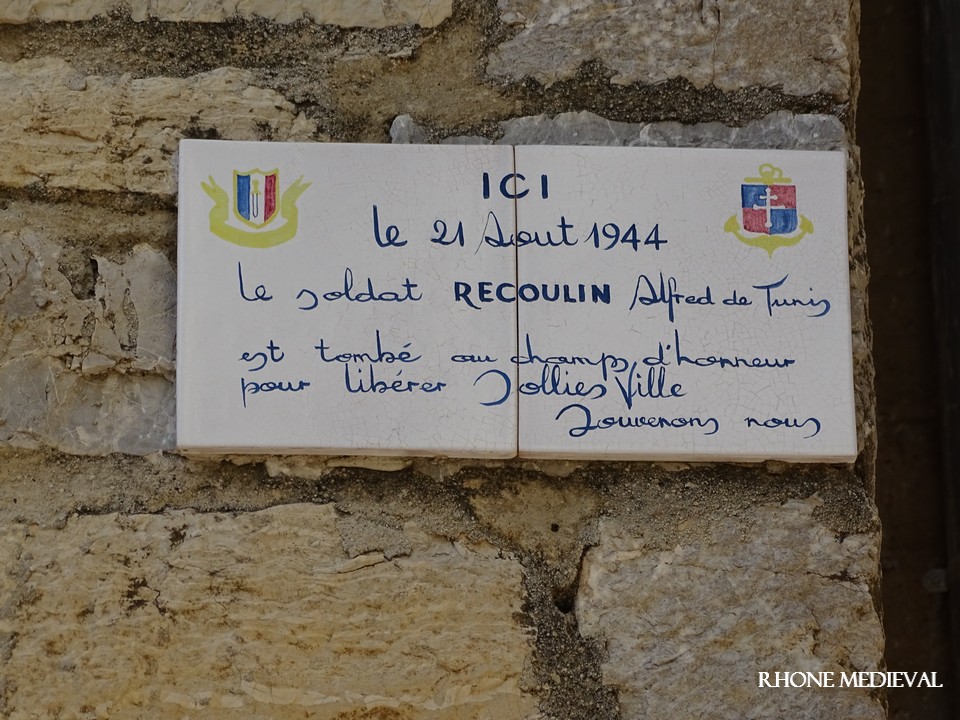 ICI
le 21 Aout 1944
le soldat RECOULIN Alfred de Tunis
est tombé au champs d'honneur
pour libérer Sollies Ville
Souvenons nous
RHONE MEDIEVAL